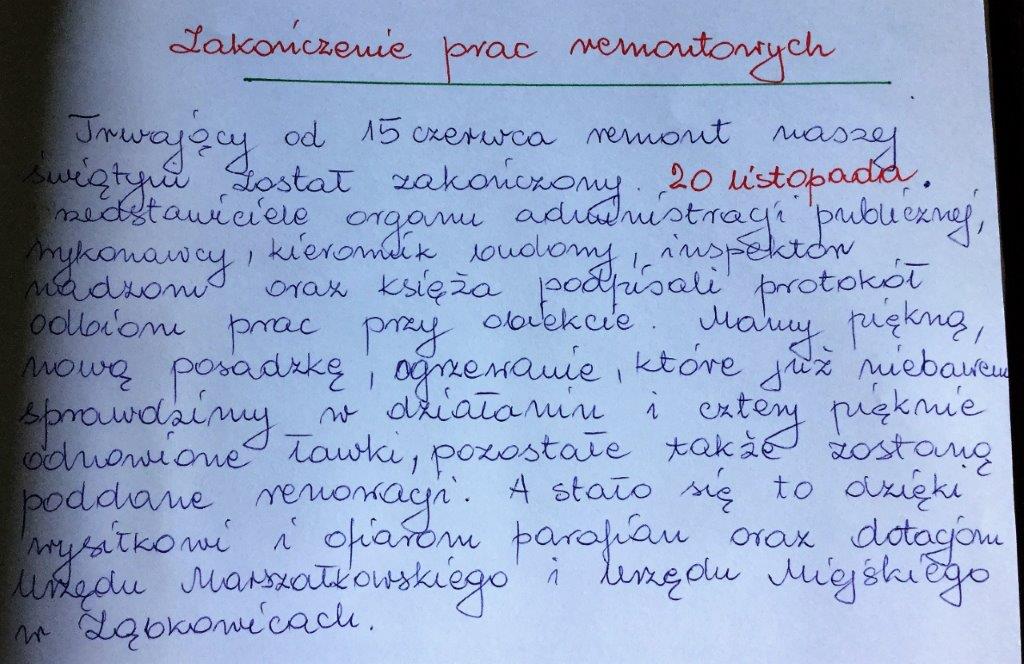 Zakończenie prac remontowych
Trwający od 15 czerwca remont naszej
świątyni został zakończony. 20 listopada.
rzedstawiciele organu administracji publicznej,
wykonawcy, kierownik budowy, inspektor
nadzoru oraz księża podpisali protokół
odbioru prac przy obiekcie. Mamy piękną,
nową posadzkę, ogrzewanie, które już niebawem
sprawdzimy w działaniu i cztery pięknie
odnowione ławki, pozostałe także zostaną
poddane renowacji. A stało się to dzięki
wysiłkowi i ofiarom parafian oraz dotacjom
Urzędu Marszałkowskiego i Urzędu Miejskiego
w Ząbkowicach.